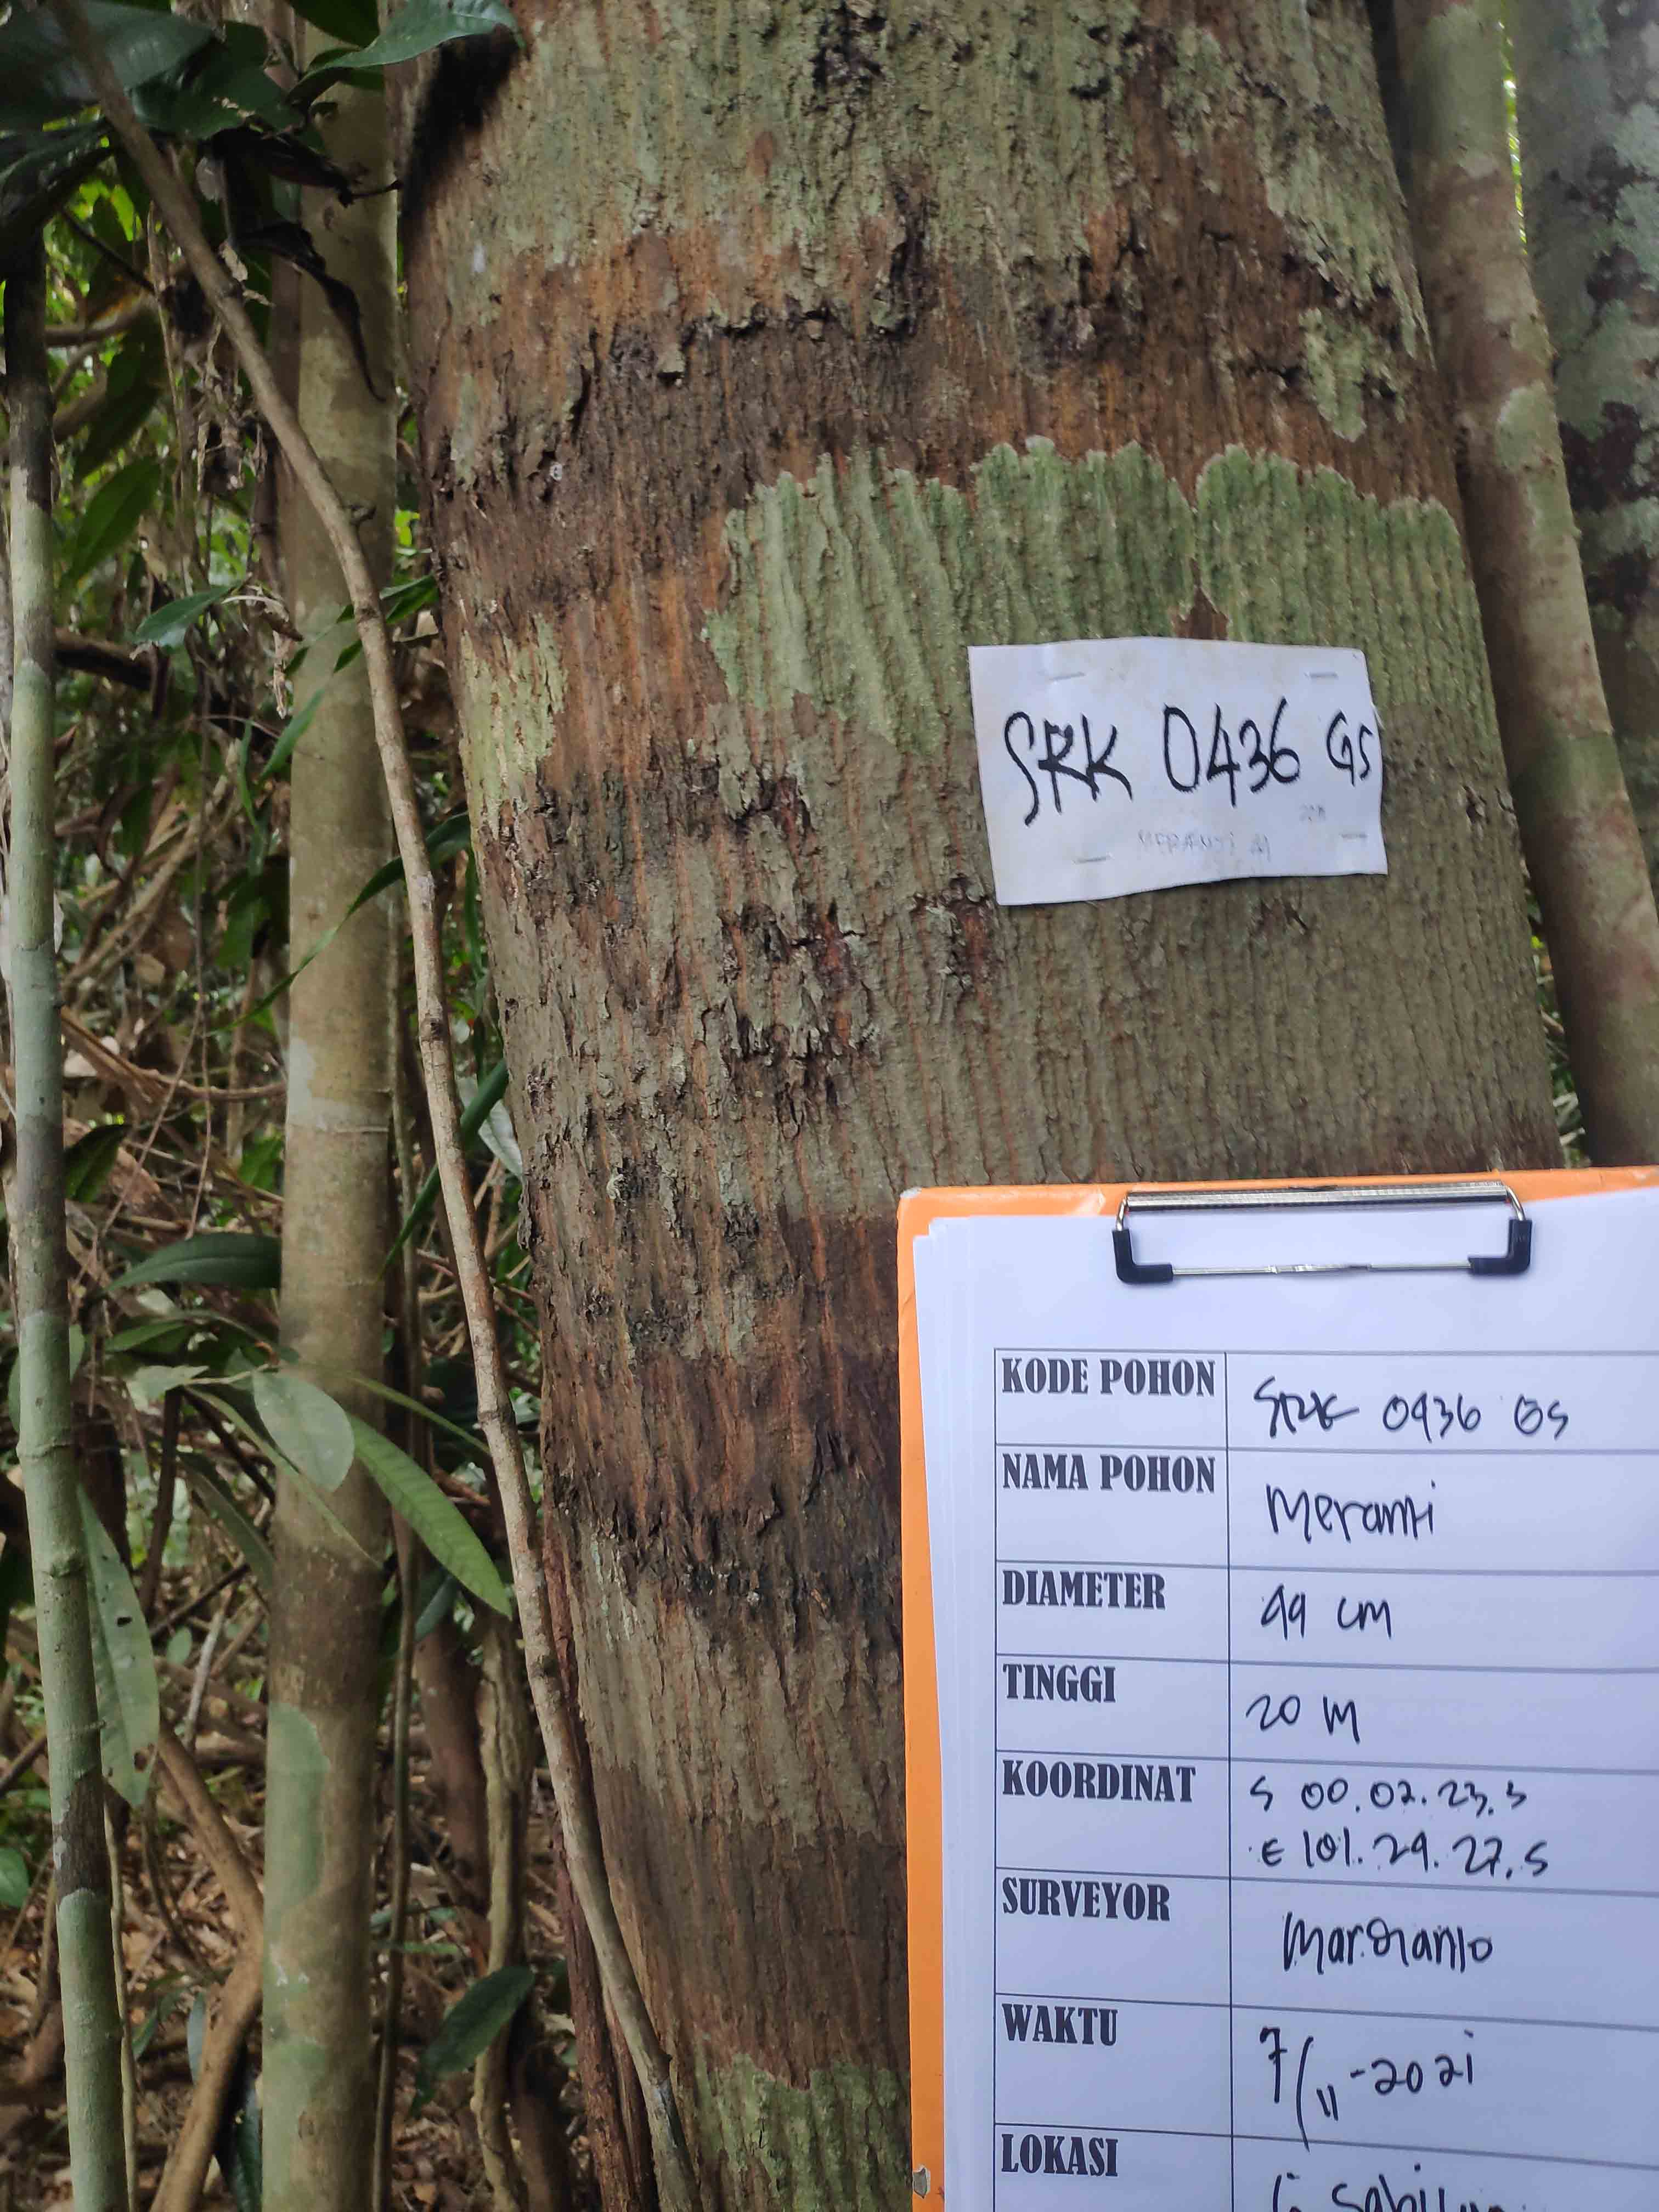 SRK 0436 GS
MERANTI M
KODE POHON SRK 0436 GS
NAMA POHON Meranti
DIAMETER 49 cm
TINGGI 20 M
KOORDINAT S 00.02.23.5
E 101.29.27.5
SURVEYOR Mardianto
WAKTU 7/11-2021
LOKASI